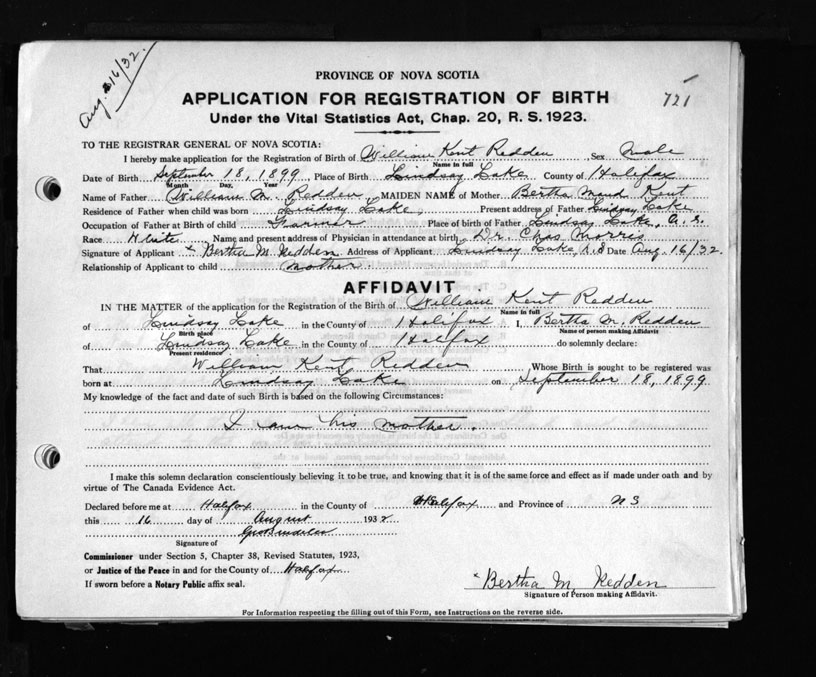 Aug. 16/32.
PROVINCE OF NOVA SCOTIA
APPLICATION FOR REGISTRATION OF BIRTH
721
Under the Vital Statistics Act, Chap. 20, R. S. 1923.
TO THE REGISTRAR GENERAL OF NOVA SCOTIA:
I hereby make application for the Registration of Birth of William Kent Redden Sex Male
Name in full
Date of Birth September 18, 1899 Place of Birth Lindsay Lake County of Halifax
Month Day, Year
Name of Father William M. Redden MAIDEN NAME of Mother Bertha Maud Kent
Residence of Father when child was born Lindsay Lake, Present address of Father Lindsay Lake
Occupation of Father at Birth of child Farmer Place of birth of Father Lindsay Lake,
Race White Name and present address of Physician in attendance at birth Dr. Chas Morris
Signature of Applicant x Bertha M. Redden Address of Applicant Lindsay Lake N.S Date Aug. 16/32.
Relationship of Applicant to child mother.
AFFIDAVIT
IN THE MATTER of the application for the Registration of the Birth of William Kent Redden
Name in full
of Lindsay Lake in the County of Halifax I, Bertha M. Redden
Birth place Name of person making Affidavit
of Lindsay Lake in the County of Halifax do solemnly declare:
Present residence
That William Kent Redden Whose Birth is sought to be registered was
born at Lindsay Lake on September 18, 1899
My knowledge of the fact and date of such Birth is based on the following Circumstances:
I am his mother.
I make this solemn declaration conscientiously believing it to be true, and knowing that it is of the same force and effect as if made under oath and by
virtue of The Canada Evidence Act.
Declared before me at Halifax in the County of Halifax and Province of N S
this 16 day of August 1932
Signature of
Commissioner under Section 5, Chapter 38, Revised Statutes, 1923,
or Justice of the Peace in and for the County of Halifax
If sworn before a Notary Public affix seal.
x Bertha M. Redden
Signature of Person making Affidavit.
For Information respecting the filling out of this Form, see Instructions on the reverse side.